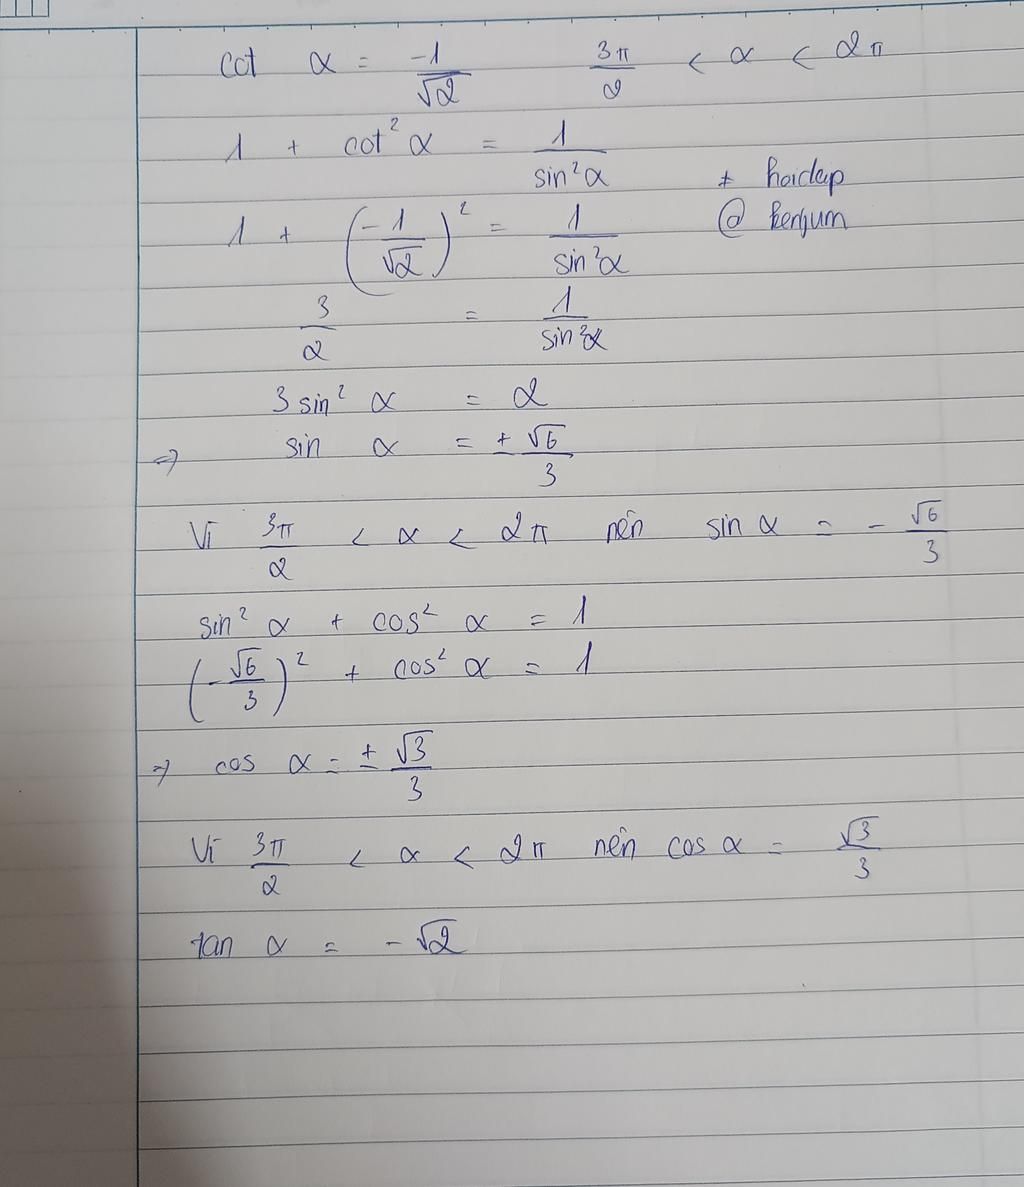 cot α = -1/√2    3π/2 < α < 2π
1 + cot² α = 1/sin²α
+ hoidap
1 + (-1/√2)² = 1/sin²α
@ kenjum
3/2 = 1/sin²α
3 sin² α = 2
⇒ sin α = ± √6/3
Vì 3π/2 < α < 2π nên sin α = - √6/3
sin² α + cos² α = 1
(-√6/3)² + cos² α = 1
⇒ cos α = ± √3/3
Vì 3π/2 < α < 2π nên cos α = √3/3
tan α = - √2